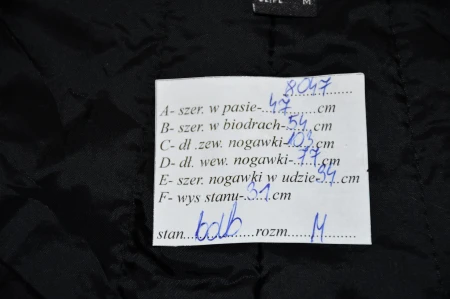 M
8047
A- szer. w pasie-47cm
B- szer. w biodrach-54cm
C- dł .zew. nogawki-103cm
D- dł. wew. nogawki-77cm
E- szer. nogawki w udzie-34cm
F- wys stanu-31cm
stan bdb rozm M